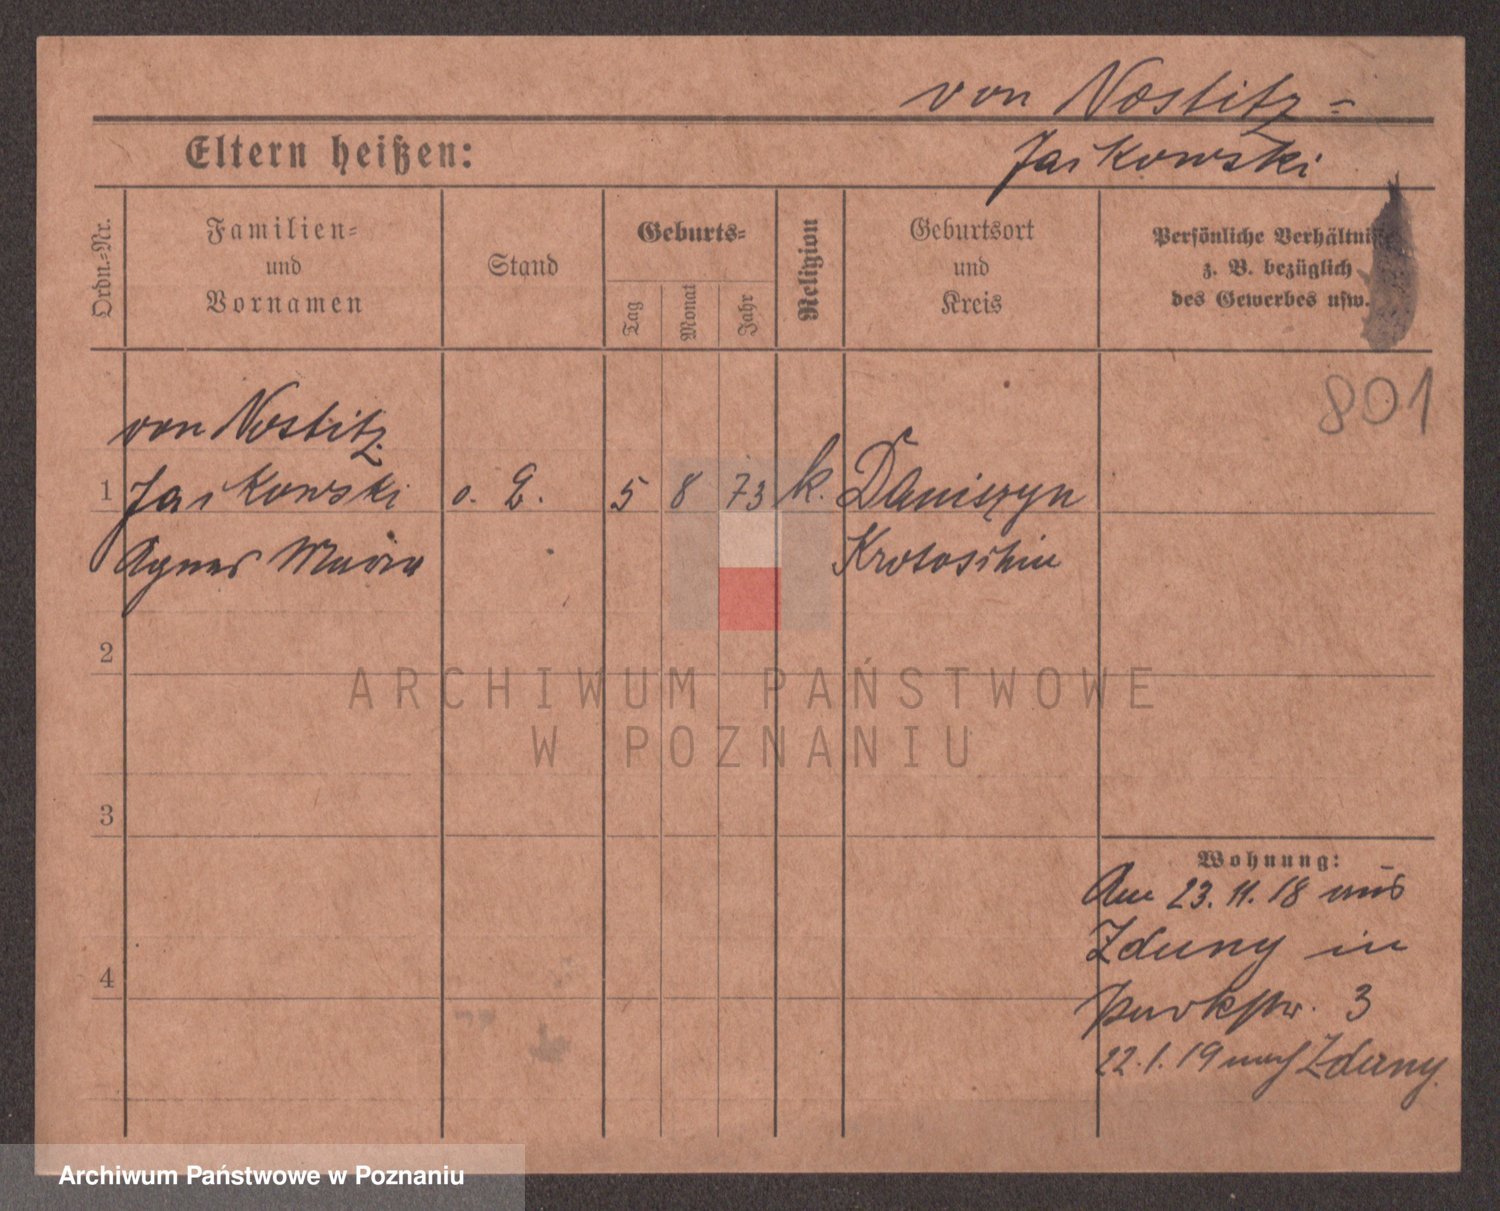 von Nostitz=
Jaikowski
Eltern heißen:
Ordn.=Nr.
Familien=
und
Vornamen
Stand
Geburts=
Tag
Monat
Jahr
Religion
Geburtsort
und
Kreis
Persönliche Verhältnisse
z. B. bezüglich
des Gewerbes usw.
801
von Nostitz
1 Jaikowski o. 5 8 73 k. Daniszyn
Agnes Maria Krotoschin
2
3
4
Wohnung:
Am 23. 11. 18 aus
Zduny in
Parkstr. 3
22. 1. 19 nach Zduny.
ARCHIWUM PAŃSTWOWE
W POZNANIU
Archiwum Państwowe w Poznaniu